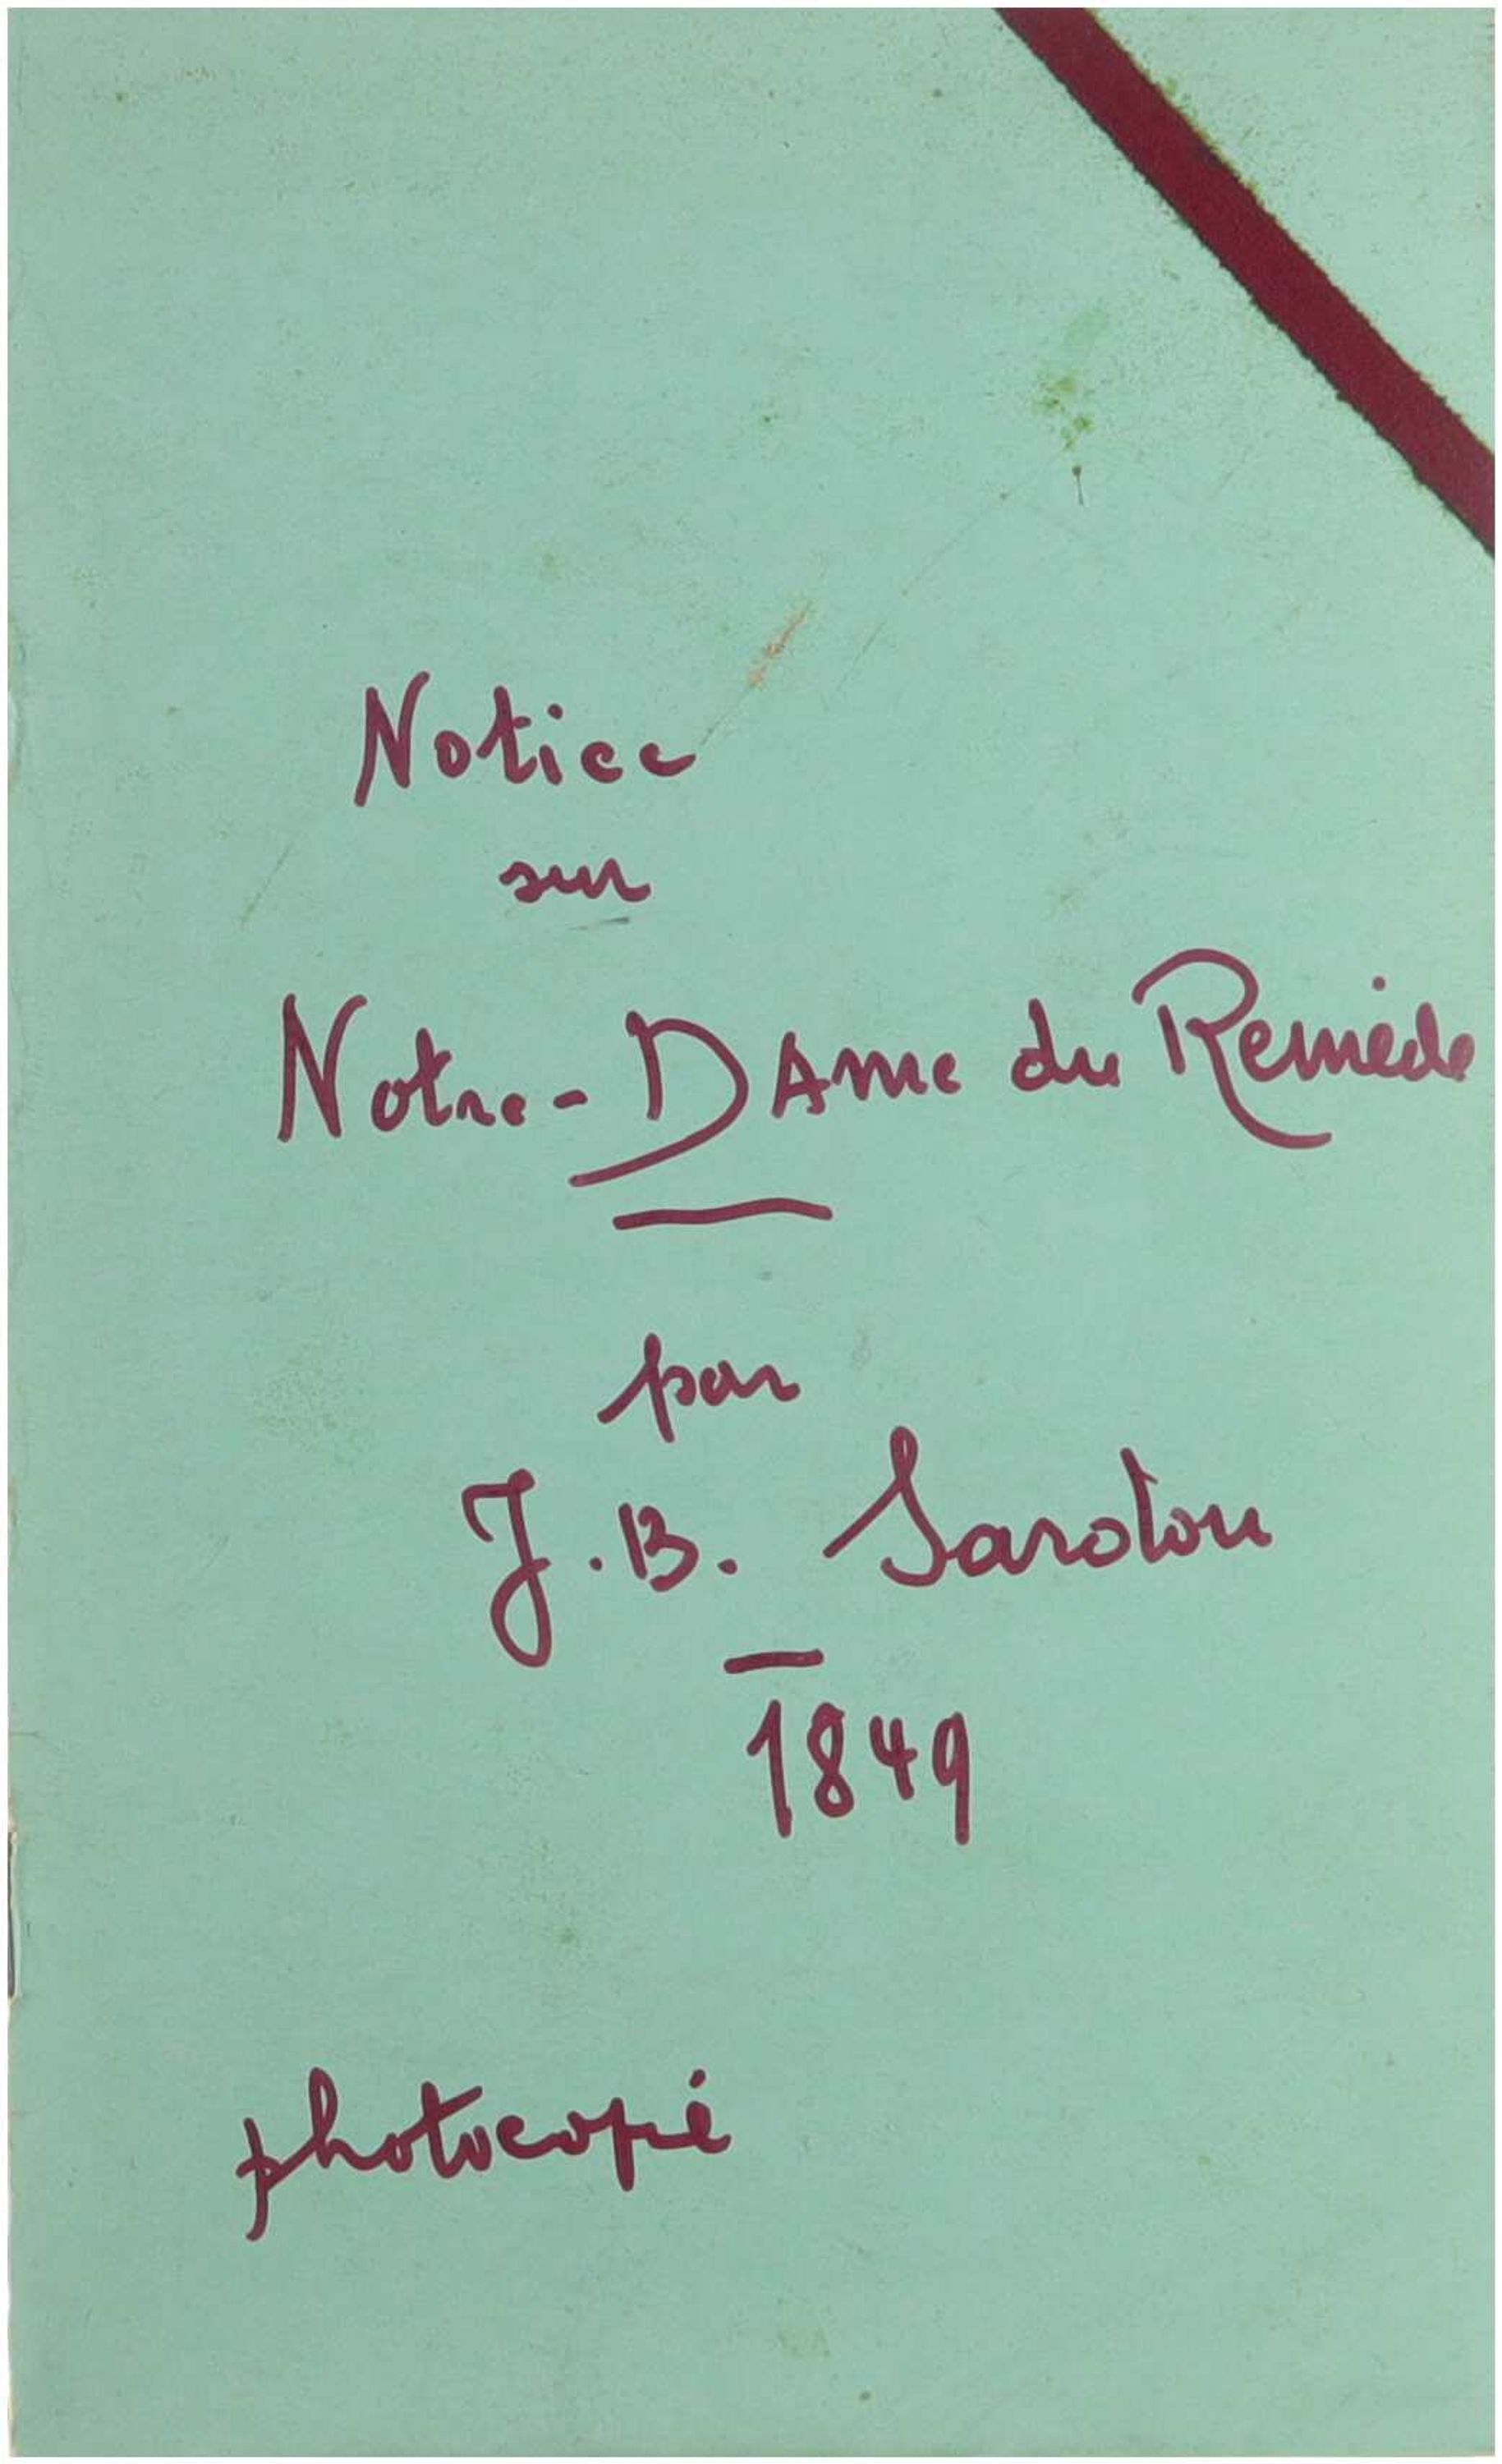 Notice
sur
Notre-DAme du Remède
par
J.B. Sarotou
1849
photocopié